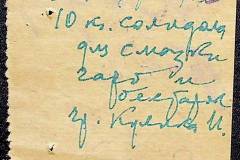 10 кг. солидола
для смазки
гарб и
бестарок
гр. Куляка И.